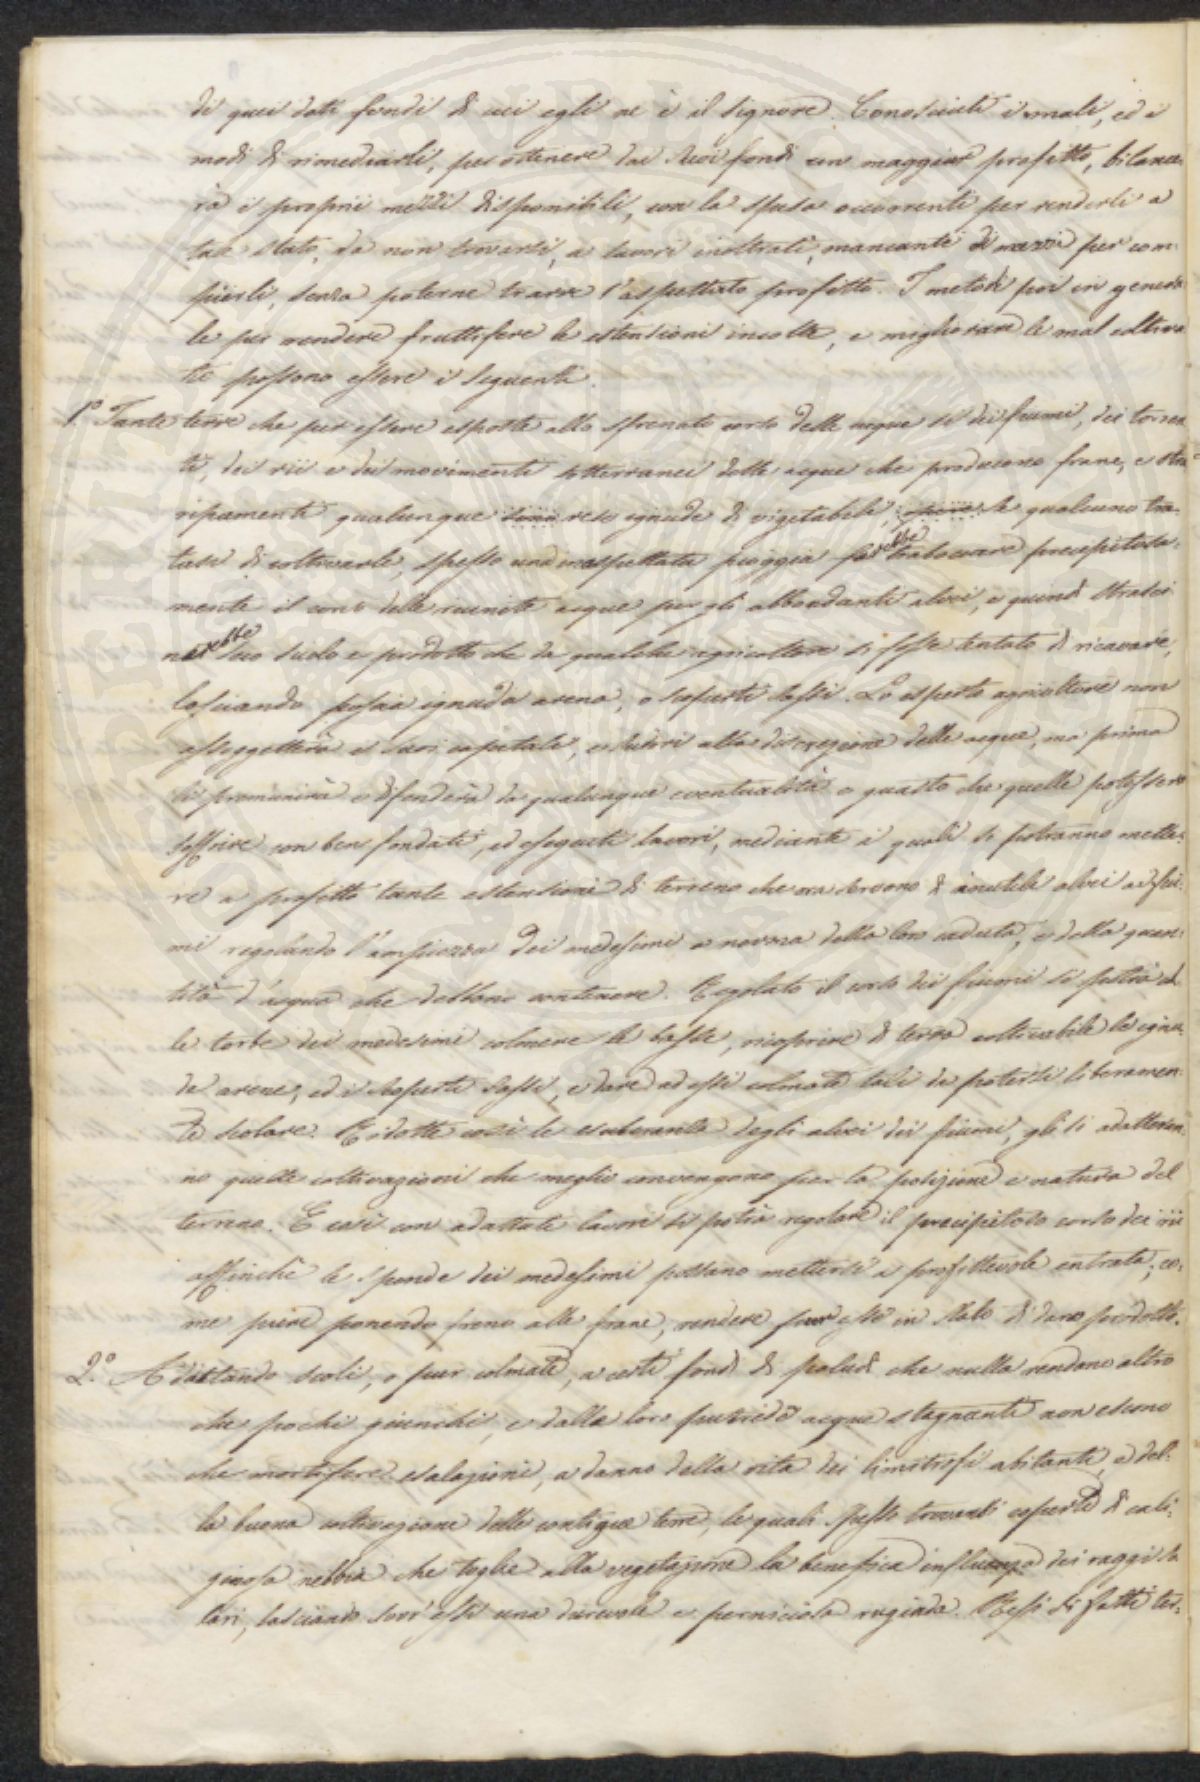 di quei dati fondi di cui egli ne è il signore. Conosciuti i mali, ed i
modi di rimediarli, per ottenere dai suoi fondi un maggior profitto, bilance-
rà i proprii mezzi disponibili, con la spesa occorrenti per renderli a
tale stato, da non trovarsi, a lavori inoltrati, mancante di mezzi per com-
pierli, senza poterne trarre l'aspettato profitto. I metodi poi in genera-
le per rendere fruttifere le estensioni incolte, e migliorare le mal coltiva-
te possono essere i seguenti.
1.° Tante terre che per essere esposte allo sfrenato corso delle acque sì dei fiumi, dei torren-
ti, dei rii e dai movimenti sotterranei delle acque che producono frane, e stra-
ripamenti qualunque sono rese ignude di vigetabili, se qualcuno ten-
tasse di coltivarle, spesso una inaspettata pioggia farebbe traloccare precipitosa-
mente il corso delle riunite acque per gli abbondanti alvei, e quindi strasci-
nerebbe suo suolo e prodotto che da qualche agricoltore si fosse tentato di ricavare,
lasciando poscia ignuda arena, o scoperti sassi. Lo esperto agricoltore non
assoggetterà i suoi capitali, e sudori alla discrezione delle acque, ma prima
li premunirà e difenderà da qualunque eventualità o guasto che quelle potessero
soffrire con ben fondati, ed eseguiti lavori, mediante i quali si potranno mette-
re a profitto tante estensioni di terreno che ora servono di inutili alvei ai fiu-
mi regolando l'ampiezza dei medesimi a norma della loro caduta, e della quan-
tità d'acqua che debbono contenere. Regolato il corso dei fiumi si potrà col-
le torbe dei medesimi colmare le basse, ricoprire di terra coltivabile le ignu-
de arene, ed i scoperti sassi, e dare ad essi colmate tali da potersi liberamen-
te scolare. Ridotte così le esuberanze degli alvei dei fiumi, gli si adatteran-
no quelle coltivazioni che meglio convengono per la posizione e natura del
terreno. E così con adattati lavori si potrà regolare il precipitoso corso dei rii
affinchè le sponde dei medesimi possano mettersi a profittevole entrata, co-
me pure ponendo freno alle frane, rendere pur esse in stato di dare prodotto.
2.° Adattando scoli, o pur colmate, a certi fondi di paludi che nulla rendono altro
che pochi giunchi, e dalla loro putride acque stagnanti non escono
che mortifere esalazioni, a danno della vita dei limitrofi abitanti, e del-
la buona coltivazione delle contigue terre, le quali spesso trovansi coperte di cali-
ginosa nebbia che toglie alla vegetazione la benefica influenza dei raggi so-
lari, lasciando sovr'essi una durevole e perniciosa rugiada. Resi di fatti ter-